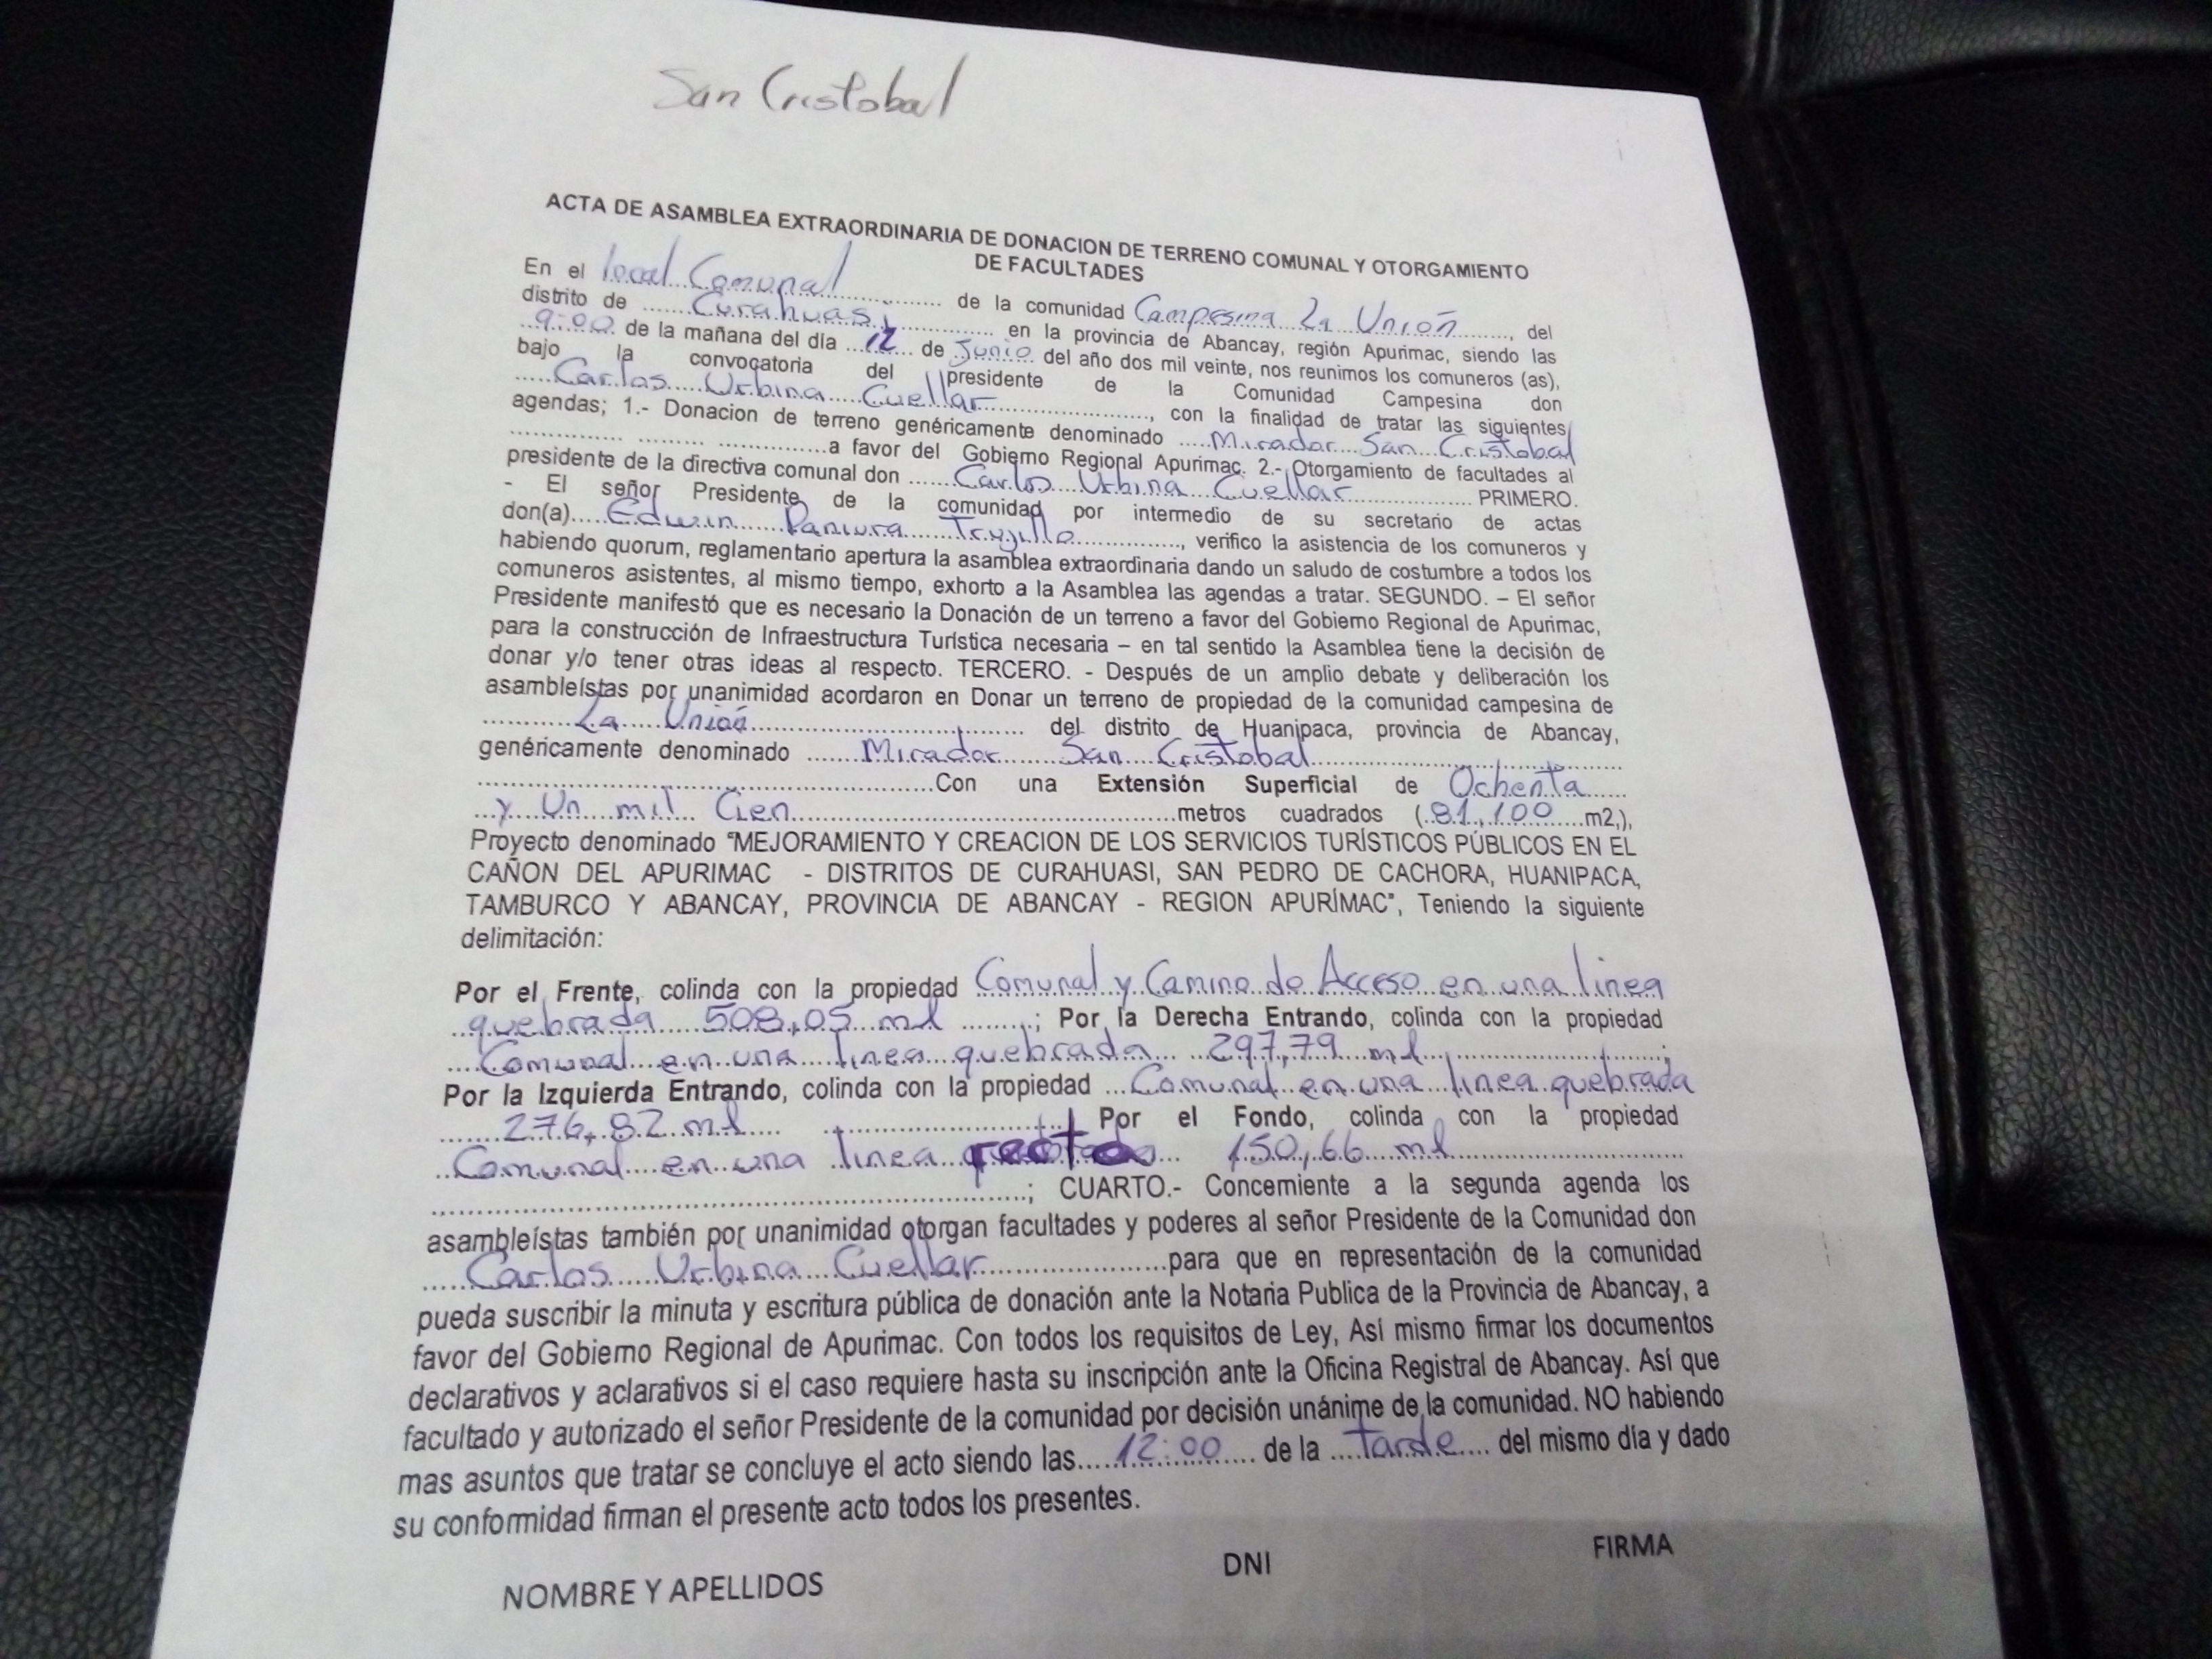 San Cristobal
ACTA DE ASAMBLEA EXTRAORDINARIA DE DONACION DE TERRENO COMUNAL Y OTORGAMIENTO
DE FACULTADES
En el local Comunal .................. de la comunidad Campesina La Unión ........, del
distrito de ....... Curahuasi, ............... en la provincia de Abancay, región Apurimac, siendo las
..9:00. de la mañana del día ...12... de Junio. del año dos mil veinte, nos reunimos los comuneros (as),
bajo la convocatoria del presidente de la Comunidad Campesina don
.....Carlos.....Urbina.....Cuellar......................., con la finalidad de tratar las siguientes
agendas; 1.- Donacion de terreno genéricamente denominado .....Mirador...San...Cristobal
................ ......... ...............a favor del Gobierno Regional Apurimac. 2.- Otorgamiento de facultades al
presidente de la directiva comunal don ......Carlos...Urbina...Cuellar................. PRIMERO.
- El señor Presidente de la comunidad por intermedio de su secretario de actas
don(a)....Edwin......Paniura......Trujillo..............., verifico la asistencia de los comuneros y
habiendo quorum, reglamentario apertura la asamblea extraordinaria dando un saludo de costumbre a todos los
comuneros asistentes, al mismo tiempo, exhorto a la Asamblea las agendas a tratar. SEGUNDO. – El señor
Presidente manifestó que es necesario la Donación de un terreno a favor del Gobierno Regional de Apurimac,
para la construcción de Infraestructura Turística necesaria – en tal sentido la Asamblea tiene la decisión de
donar y/o tener otras ideas al respecto. TERCERO. - Después de un amplio debate y deliberación los
asambleístas por unanimidad acordaron en Donar un terreno de propiedad de la comunidad campesina de
.............La.....Unión................................. del distrito de Huanipaca, provincia de Abancay,
genéricamente denominado .......Mirador........San....Cristobal........................................
......................................................Con una Extensión Superficial de Ochenta.....
...y Un mil Cien..................................................metros cuadrados (.81,100....m2,),
Proyecto denominado “MEJORAMIENTO Y CREACION DE LOS SERVICIOS TURÍSTICOS PÚBLICOS EN EL
CAÑON DEL APURIMAC - DISTRITOS DE CURAHUASI, SAN PEDRO DE CACHORA, HUANIPACA,
TAMBURCO Y ABANCAY, PROVINCIA DE ABANCAY - REGION APURÍMAC”, Teniendo la siguiente
delimitación:
Por el Frente, colinda con la propiedad Comunal y Camino de Acceso en una linea
..quebrada.....508,05 ml .........; Por la Derecha Entrando, colinda con la propiedad
....Comunal...en...una...linea..quebrada... ..297,79 ml...........................;
Por la Izquierda Entrando, colinda con la propiedad ...Comunal..en..una..linea quebrada
.......276,82 ml.... ........................... Por el Fondo, colinda con la propiedad
..Comunal....en..una linea recta... 150,66 ml..............................
..................................................................; CUARTO.- Concerniente a la segunda agenda los
asambleístas también por unanimidad otorgan facultades y poderes al señor Presidente de la Comunidad don
.....Carlos.....Urbina...Cuellar......................para que en representación de la comunidad
pueda suscribir la minuta y escritura pública de donación ante la Notaria Publica de la Provincia de Abancay, a
favor del Gobierno Regional de Apurimac. Con todos los requisitos de Ley, Así mismo firmar los documentos
declarativos y aclarativos si el caso requiere hasta su inscripción ante la Oficina Registral de Abancay. Así que
facultado y autorizado el señor Presidente de la comunidad por decisión unánime de la comunidad. NO habiendo
mas asuntos que tratar se concluye el acto siendo las.....12:00.... de la ....tarde.... del mismo día y dado
su conformidad firman el presente acto todos los presentes.
NOMBRE Y APELLIDOS DNI FIRMA